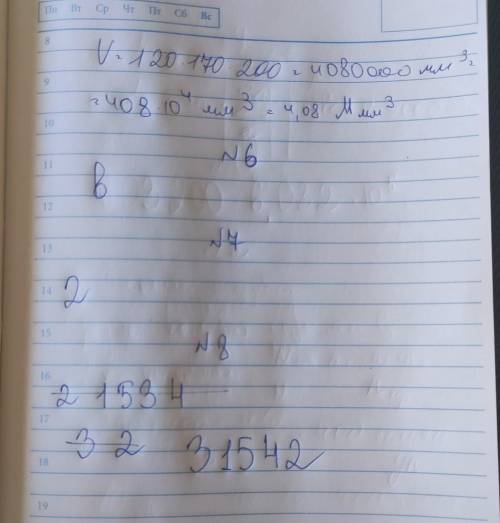 Пн Вт Ср Чт Пт Сб Вс
8
V = 120·170·200 = 4080000 мм³ =
9
= 408·10⁴ мм³ = 4,08 Ммм³
10
№6
11
в
12
№7
13
14
2
15
№8
16
2 1534
17
3 2 31542
18
19